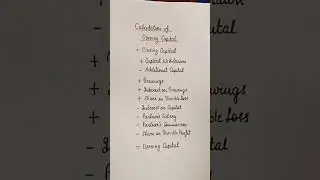 Calculation of
Opening Capital
= Closing Capital
+ Capital Withdrawn
- Additional Capital
+ Drawings
+ Interest on Drawings
+ Share in Divisible Loss
- Interest on Capital
- Partner's Salary
- Partner's Commission
- Share in Divisible Profit
= Opening Capital